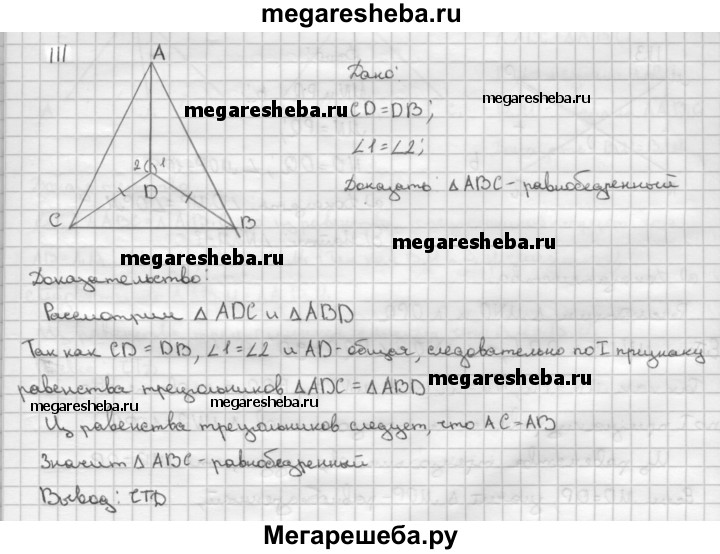 megaresheba.ru
111
A
Дано:
megaresheba.ru
CD=DB;
megaresheba.ru
∠1=∠2;
2 1
D
Доказать: ΔABC-равнобедренный
C
B
megaresheba.ru
megaresheba.ru
Доказательство:
Рассмотрим Δ ADC и ΔABD
Так как CD = DB, ∠1=∠2 и AD-общая, следовательно по I признаку
равенства треугольников ΔADC = ΔABD
megaresheba.ru
megaresheba.ru
megaresheba.ru
Из равенства треугольников следует, что AC=AB
Значит Δ ABC-равнобедренный
Вывод: ЧТД
Мегарешеба.ру